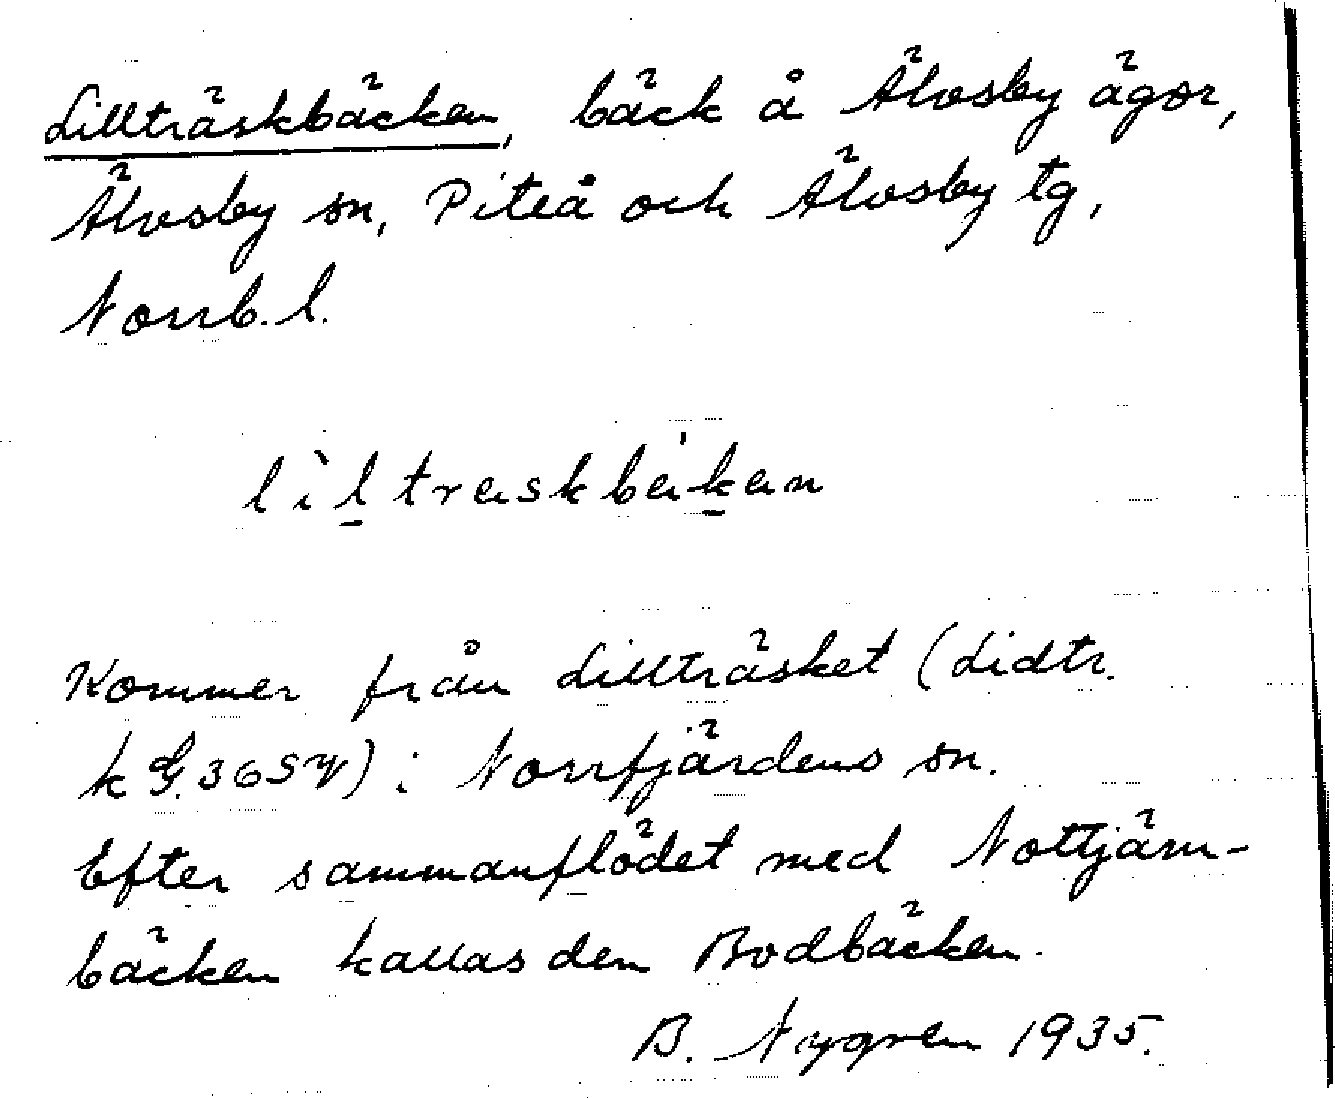 Lillträskbäcken, bäck å Älvsby ägor,
Älvsby sn, Piteå och Älvsby tg,
Norrb. l.
lìl̠træskbæ̍k̠æn
Kommer från Lillträsket (Lidtr.
k G. 36 SV) i Norrfjärdens sn.
Efter sammanflödet med Nottjärn-
bäcken kallas den Bodbäcken.
B. Nygren 1935.